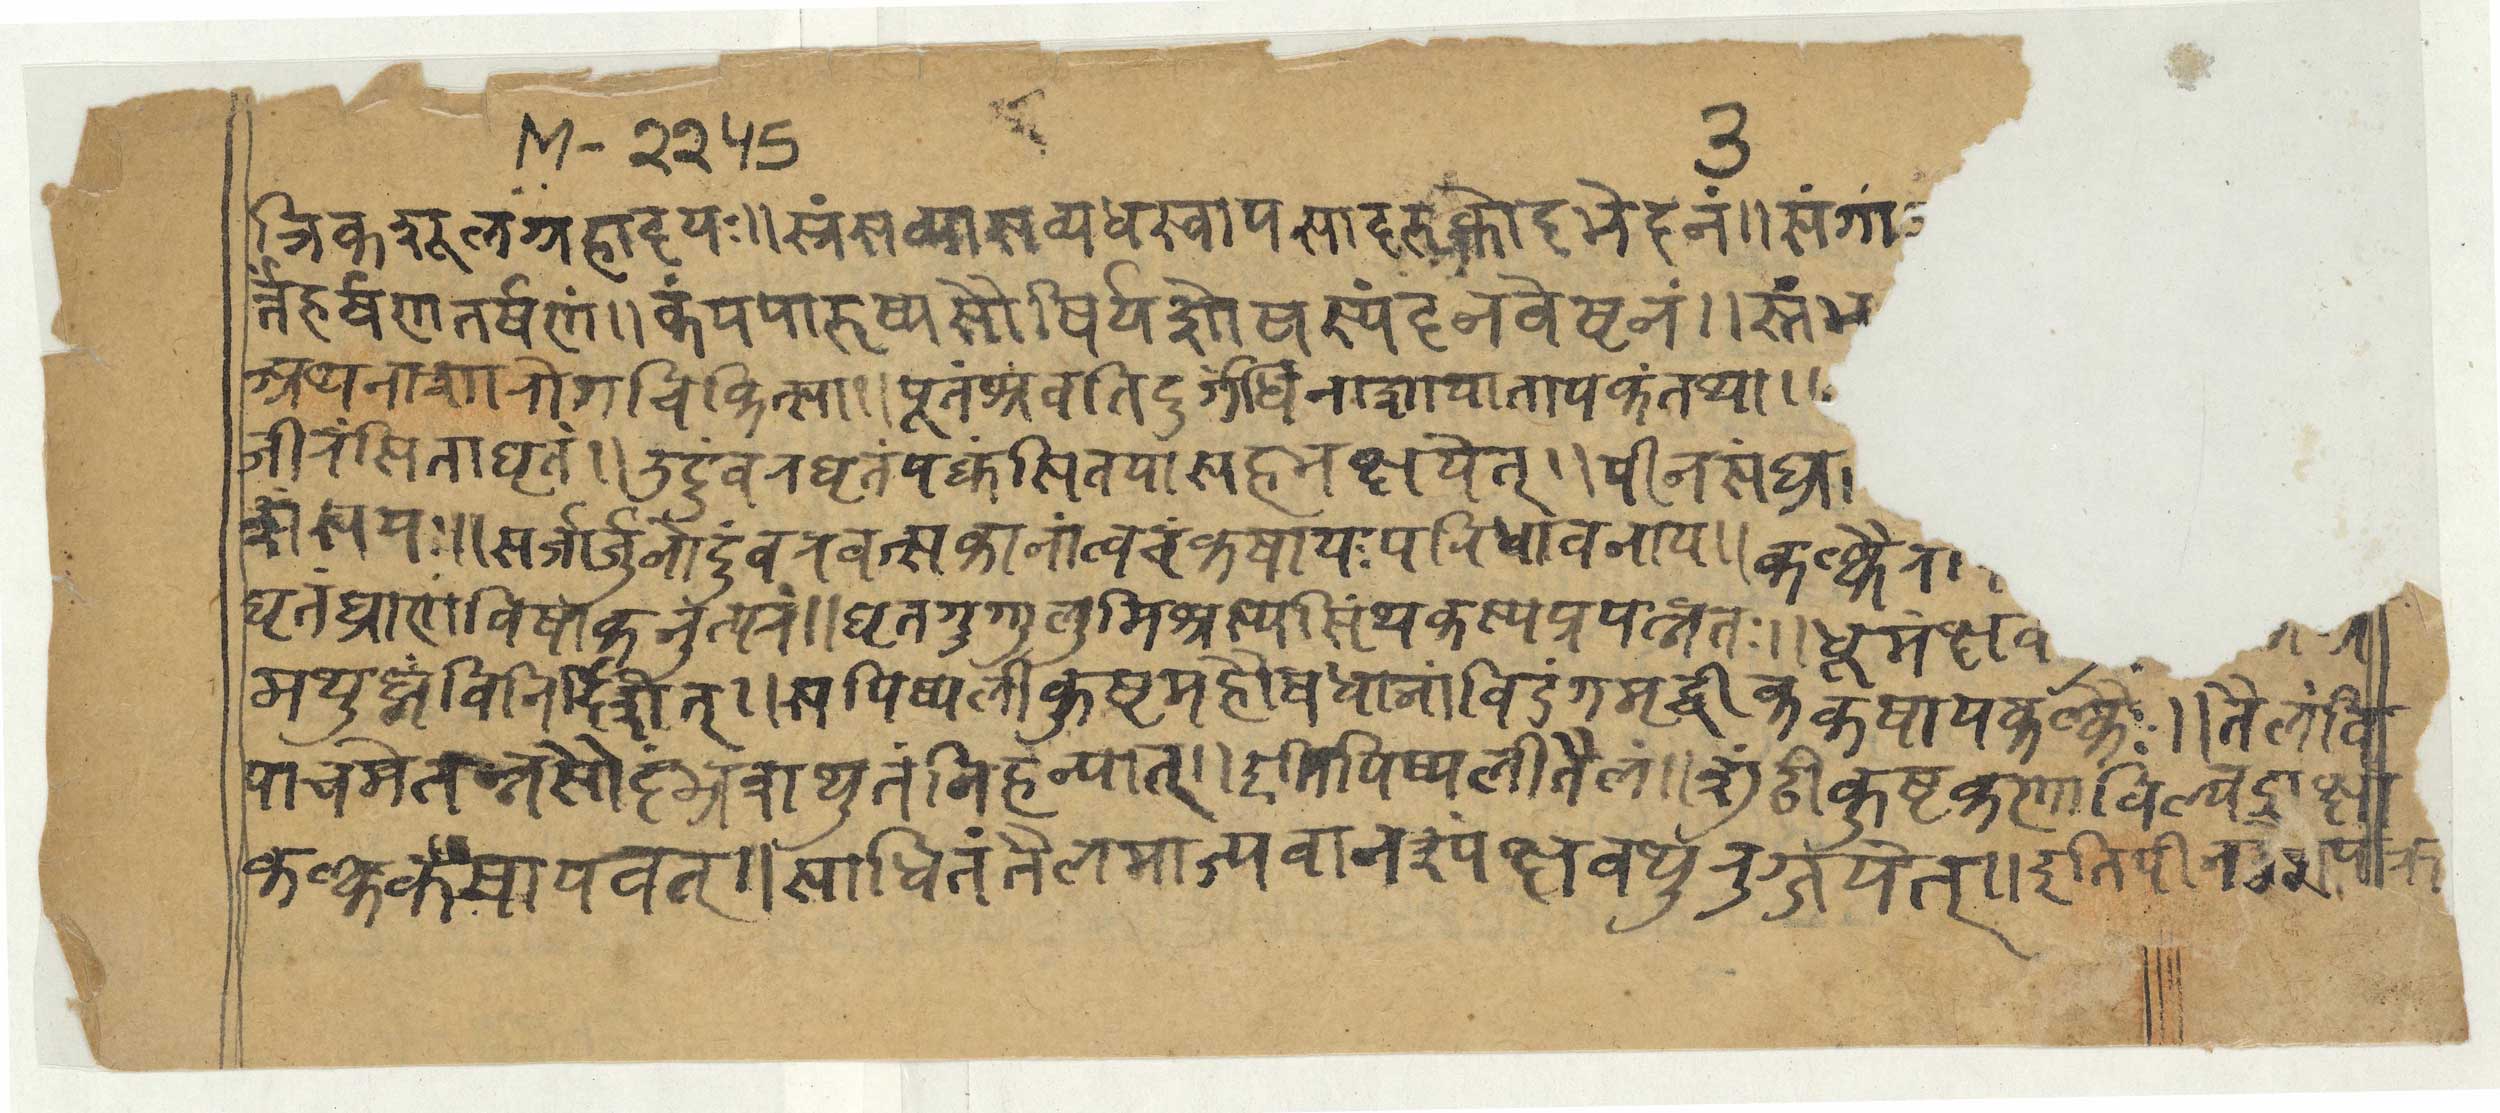 M-२२45
3
त्रिकशूलग्रहादयः॥ स्रंसव्यासव्यधस्वापसादरुक्तोदभेदनं॥ संगां
र्त्तहर्षणतर्षणं॥ कंपपारुष्यसौषिर्यशोषस्पंदनवेष्टनं॥ स्तंभ
अथनाशारोगचिकित्साः॥ पूतंश्रवतिदुर्गंधिंनाशायातापकंतथा॥
जीरंसिताघृतं॥ उदुंवरघृतंपक्वंसितयासहभक्षयेत्॥ पीनसंघ्रा
शंसयः॥ सर्जार्जुनोदुंवरवत्सकानांत्वचंकषायःपरिधावनाय॥ कल्कैरा
घृतंघ्राणविषाकनुत्परं॥ घृतगुग्गुलुमिश्रस्यसिंथकस्यप्रपत्नतः॥ धूमंक्षव
मथुघ्नंविनिर्दिशेत्॥ सपिप्पलीकुष्टमहौषधानांविडंगमृद्वीककषायकल्कैः॥ तैलंवि
पाचमेतन्नसो निहन्यात्॥ इतिपिप्पलीतैलं॥ शुंठीकुष्टकणाविल्वद्राक्षा
कल्ककषायवत्॥ साधितंतैलमाज्यंवानस्पंक्षवथुरुग्जयेत्॥ इतिपीन